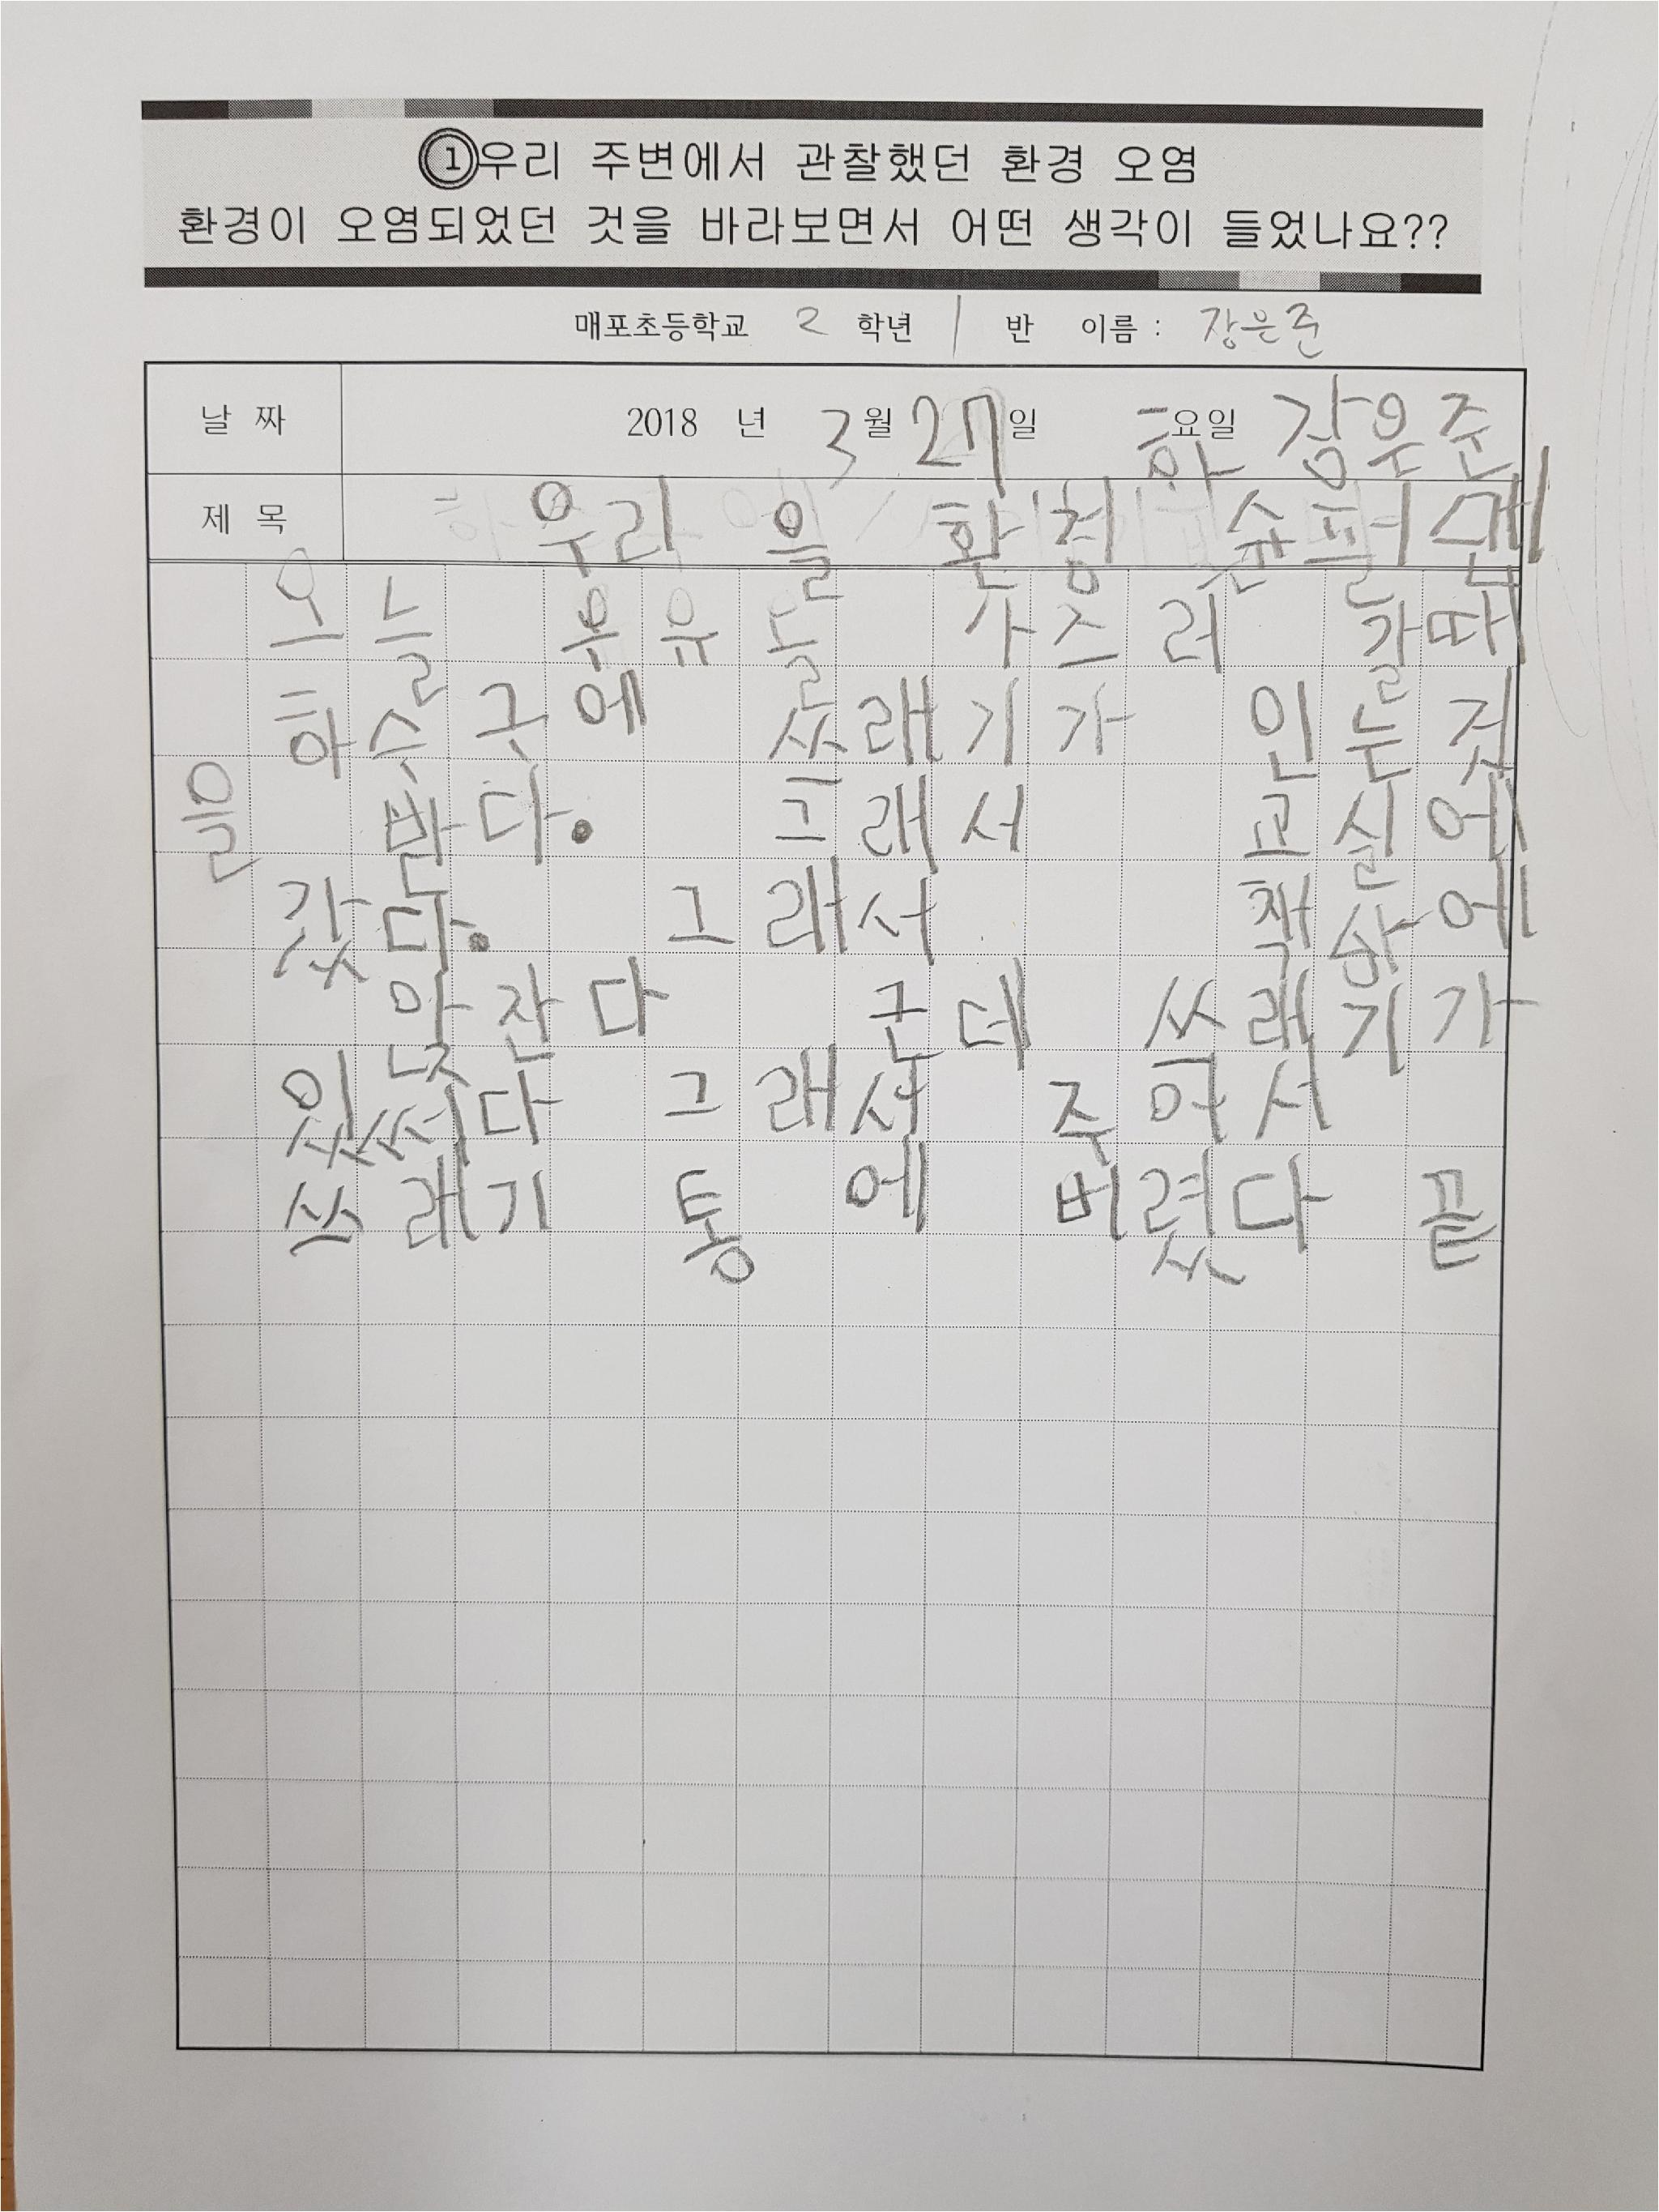 ①우리 주변에서 관찰했던 환경 오염
환경이 오염되었던 것을 바라보면서 어떤 생각이 들었나요??
매포초등학교 2 학년 1 반 이름 : 장은준
날 짜 2018 년 3월 27일 화요일 장은준
제 목 우리 을 환청 슌퍼맨
오늘 우유들 가즈러 갈따
하수근에 쓰래기가 인는 것
을 밨다. 그래서 교실에
갔다. 그래서 책상에
앉잔다 근데 쓰래기가
있써다 그래서 주어서
쓰래기 통 에 버렸다 끝